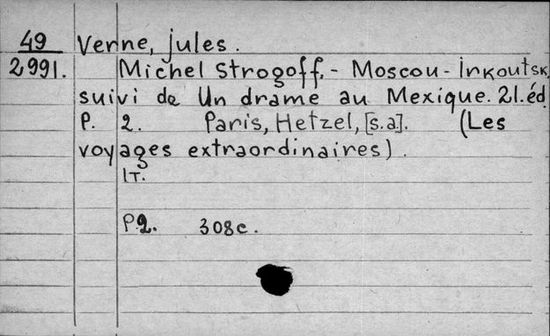 49 Verne, Jules.
2991. Michel Strogoff. - Moscou - Irkoutsk,
suivi de Un drame au Mexique. 21.éd.
P. 2. Paris, Hetzel, [s.a]. (Les
voyages extraordinaires).
IT.
P.2. 308c.